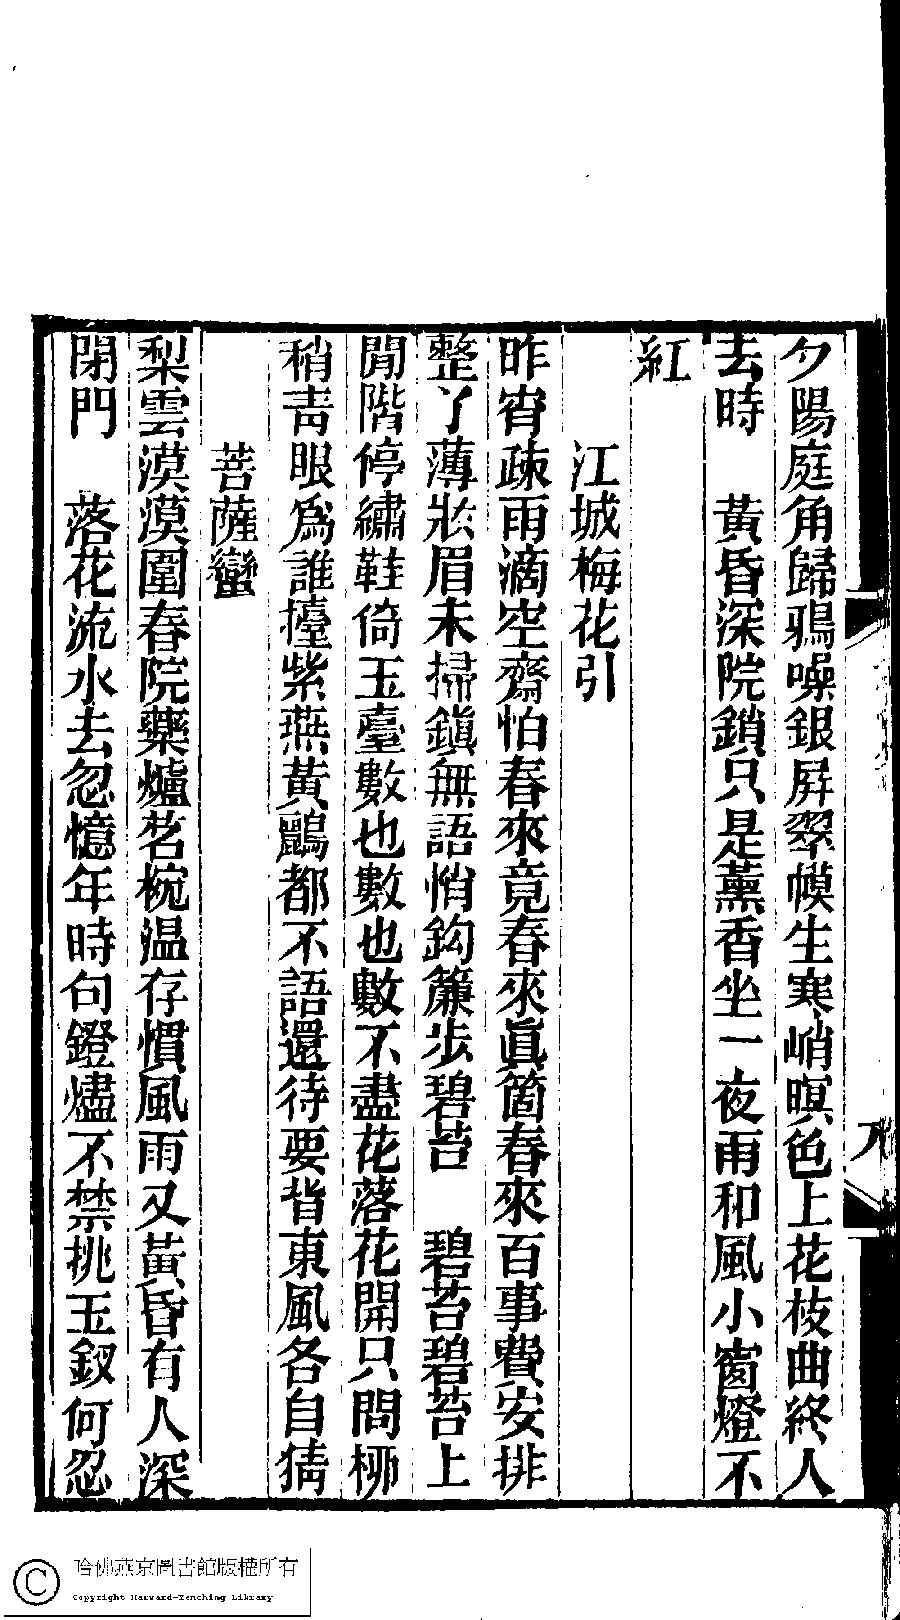 夕陽庭角歸鴉噪銀屛翠幙生寒峭暝色上花枝曲終人
去時　黃昏深院鎖只是薰香坐一夜雨和風小窗燈不
紅
江城梅花引
昨宵疎雨滴空齋怕春來竟春來眞箇春來百事費安排
整了薄妝眉未掃鎭無語悄鈎簾步碧苔　碧苔碧苔上
閒階停繡鞋倚玉臺數也數也數不盡花落花開只問桺
稍靑眼爲誰擡紫燕黃鸝都不語還待要背東風各自猜
菩薩蠻
梨雲漠漠圍春院藥爐茗椀温存慣風雨又黃昏有人深
閉門　落花流水去忽憶年時句鐙燼不禁挑玉釵何忍
哈佛燕京圖書館版權所有
Copyright Harvard-Yenching Library